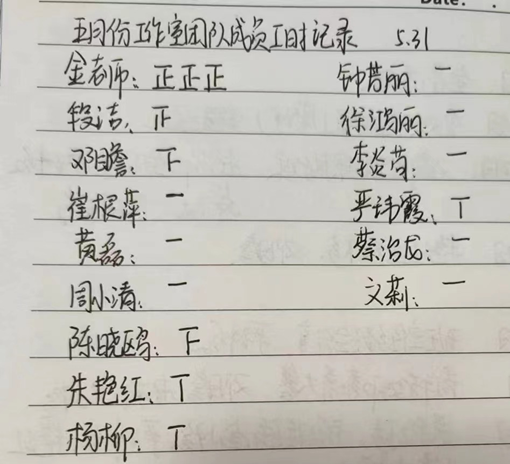 Date:
五月份工作室团队成员工时记录 5.31
金老师: 正正正 钟苔丽: 一
段洁: 正 徐鸿丽: 一
邓瞻: 下 李炎苟: 一
崔根萍: 一 严玮霞: 丅
黄磊: 一 蔡治龙: 一
周小清: 一 文莉: 一
陈晓鸥: 下
朱艳红: 丅
杨柳: 丅